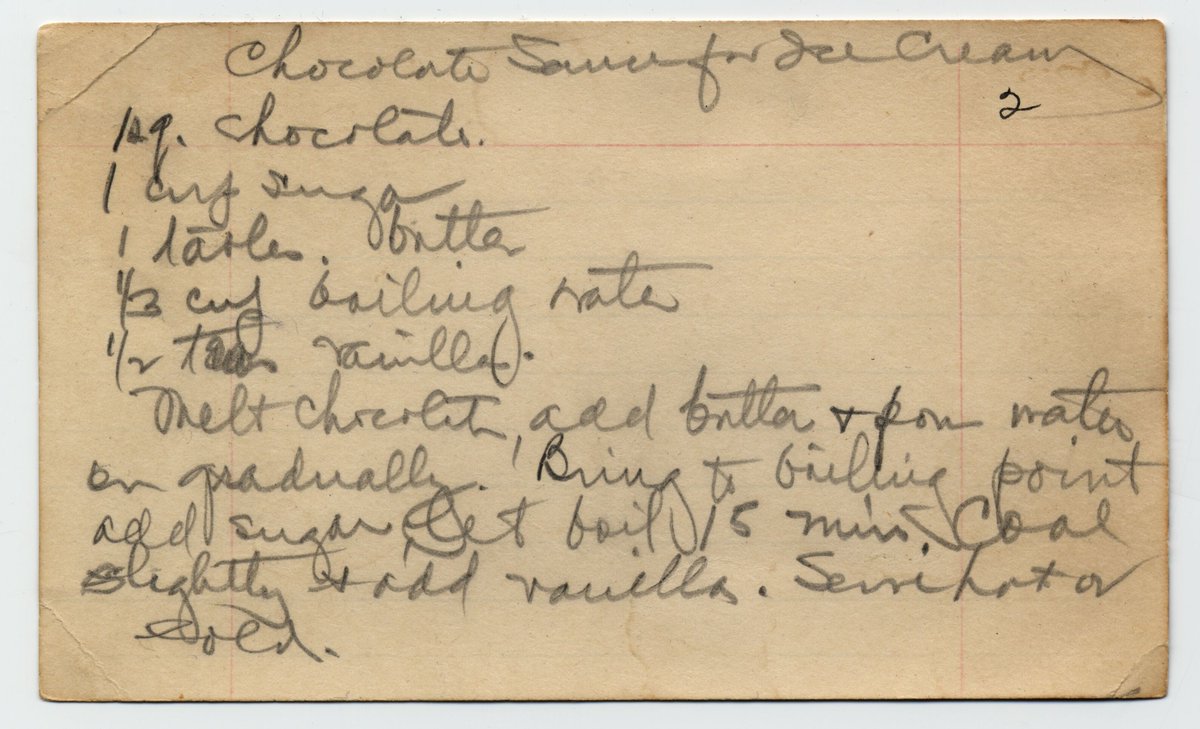 Chocolate Sauce for Ice Cream
2
1 sq. chocolate.
1 cup sugar
1 tables. butter
1/3 cup boiling water
1/2 teas vanilla.
Melt chocolate, add butter + pour water
on gradually. Bring to boiling point
add sugar, Let boil 15 min. Cool
slightly + add vanilla. Serve hot or
cold.